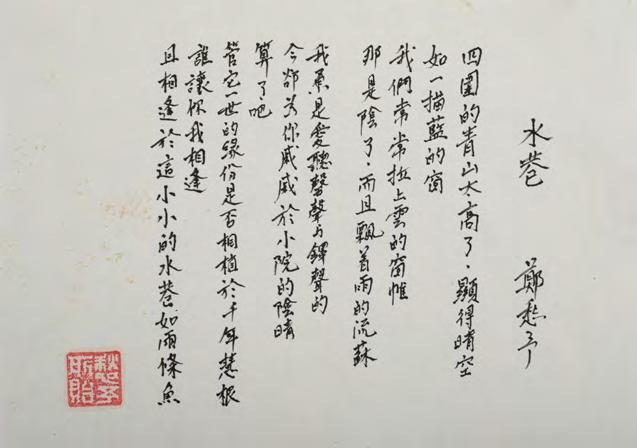 水巷 鄭愁予
四圍的青山太高了，顯得晴空
如一描藍的窗
我們常常拉上雲的窗帷
那是陰了，而且飄着雨的流蘇
我原是愛聽磬聲与鐸聲的
今卻為你戚戚於小院的陰晴
算了吧
管它一世的緣份是否相植於千年慧根
誰讓你我相逢
且相逢於這小小的水巷如兩條魚
愁予
所貽